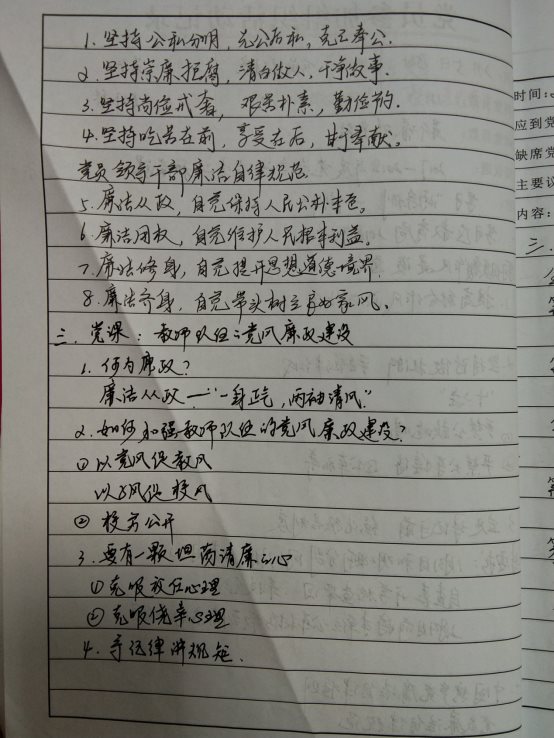 1. 坚持公私分明，先公后私，克己奉公.
2. 坚持崇廉拒腐，清白做人，干净做事.
3. 坚持尚俭戒奢，艰苦朴素，勤俭节约.
4. 坚持吃苦在前，享受在后，甘于奉献。
党员领导干部廉洁自律规范
5. 廉洁从政，自觉保持人民公仆本色。
6. 廉洁用权，自觉维护人民根本利益。
7. 廉洁修身，自觉提升思想道德境界
8. 廉洁齐身，自觉带头树立良好家风。
三. 党课：教师队伍之党风廉政建设
1. 何为廉政？
廉洁从政 — “一身正气，两袖清风”
2. 如何加强教师队伍的党风廉政建设？
① 以党风促教风
以教风促校风
② 校务公开
3. 要有一颗坦荡清廉之心
① 克服放任心理
② 克服侥幸心理
4. 守纪律讲规矩.
时间:
应到党
缺席党
主要议
内容:
三.